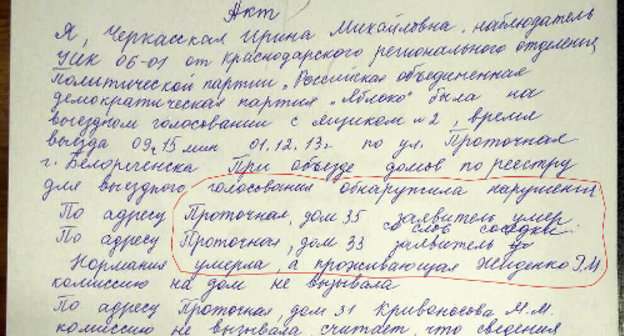 Акт
Я, Черкасская Ирина Михайловна, наблюдатель
УИК 06-01 от Краснодарского регионального отделения
Политической партии „Российская объединенная
демократическая партия „Яблоко" была на
выездном голосовании с ящиком №2, время
выезда 09 ч 15 мин 01.12.13г. по ул. Проточная
г. Белореченска При объезде домов по реестру
для выездного голосования обнаружила нарушения:
По адресу Проточная, дом 35 заявитель умер
со слов соседки.
По адресу Проточная, дом 33 заявитель
умерла, а проживающая Жиденко Э.М
комиссию на дом не вызывала
По адресу Проточная, дом 31 Кривоносова М.М.
комиссию не вызывала считает, что сведения